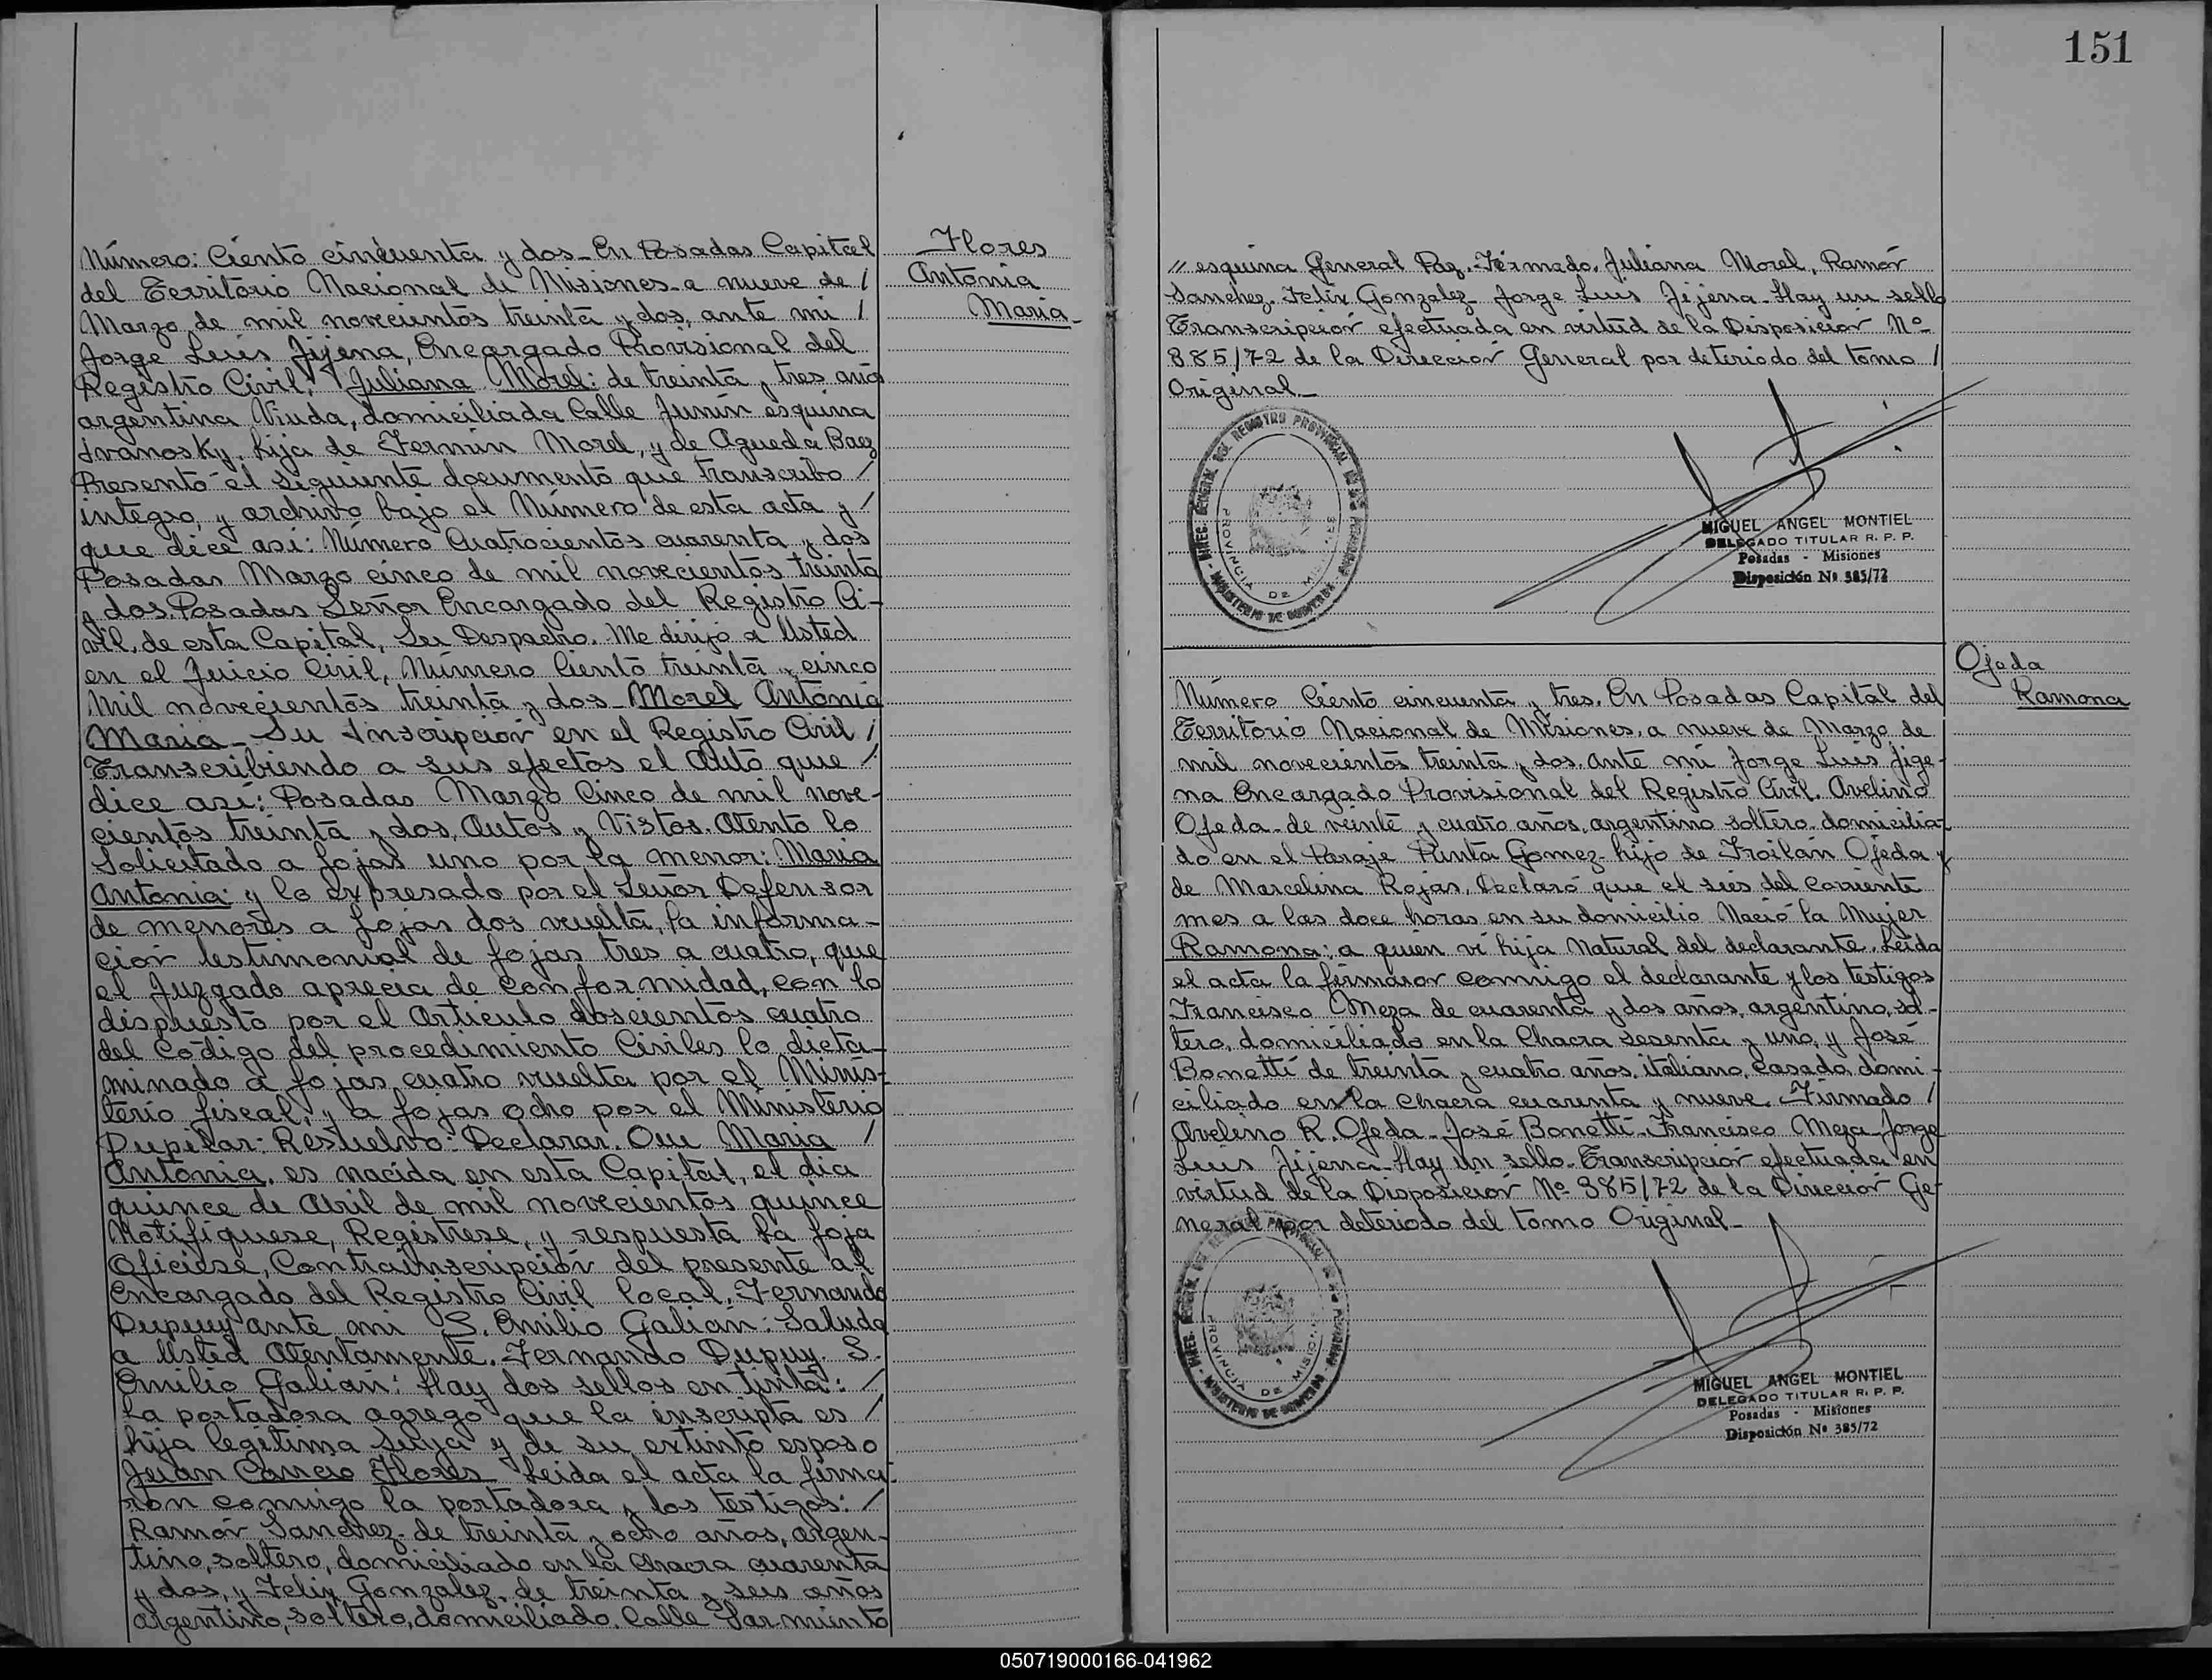 Número: Ciento cincuenta y dos_ En Posadas Capital
del Territorio Nacional de Misiones_ a nueve de /
Marzo de mil novecientos treinta y dos, ante mi /
Jorge Luis Jijena, Encargado Provisional del
Registro Civil; Juliana Morel: de treinta y tres años
argentina Viuda, domiciliada Calle Junín esquina
Ivanosky, hija de Fermin Morel, y de Agueda Baez
Presentó el siguiente documento que transcribo /
integro, y archivo bajo el Número de esta acta y /
que dice así: Número Cuatrocientos cuarenta y dos
Posadas Marzo cinco de mil novecientos treinta
y dos. Posadas Señor Encargado del Registro Ci-
vil, de esta Capital, Su Despacho. Me dirijo a Usted
en el Juicio Civil, Número Ciento treinta y cinco
Mil novecientos treinta y dos_ Morel Antonia
Maria_ Su Inscripción en el Registro Civil /
Transcribiendo a sus efectos el Auto que /
dice así: Posadas Marzo Cinco de mil nove-
cientos treinta y dos, Autos y Vistos. Atento lo
Solicitado a fojas uno por la menor: Maria
Antonia: y lo expresado por el Señor Defensor
de menores a fojas dos vuelta, la informa-
ción testimonial de fojas tres a cuatro, que
el Juzgado aprecia de conformidad, con lo
dispuesto por el Artículo doscientos cuatro
del Código del procedimiento Civiles lo dicta-
minado a fojas cuatro vuelta por el Minis-
terio fiscal, y a fojas ocho por el Ministerio
Pupilar: Resuelvo: Declarar. Que Maria /
Antonia, es nacida en esta Capital, el dia
quince de Abril de mil novecientos quince
Notifíquese, Regístrese, y respuesta la foja
Oficiese, Contrainscripción del presente al
Encargado del Registro Civil local, Fernando
Dupuy ante mi S. Emilio Galián: Saluda
a Usted Atentamente. Fernando Dupuy. S.
Emilio Galián: Hay dos sellos en tinta: /
La portadora agregó que la inscripta es /
hija legítima suya y de su extinto esposo
Juan Flores Leida el acta la firma-
ron conmigo la portadora y los testigos: /
Ramón Sanchez_ de treinta y ocho años, argen-
tino, soltero, domiciliado en la Chacra cuarenta
y dos, y Felix Gonzalez, de treinta y seis años
argentino, soltero, domiciliado, Calle Sarmiento
Flores
Antonia
Maria_
151
// esquina General Paz. Firmado. Juliana Morel, Ramón
Sanchez. Felix Gonzalez_ Jorge Luis Jijena_ Hay un sello
Transcripción efectuada en virtud de la Disposición Nº
385/72 de la Dirección General por deteriodo del tomo /
Original._
DIREC. GENERAL DEL REGISTRO PROVINCIAL DE LAS PERSONAS - MINISTERIO DE GOBIERNO -
PROVINCIA DE MISIONES
MIGUEL ANGEL MONTIEL
DELEGADO TITULAR R. P. P.
Posadas - Misiones
Disposición Nº 385/72
Ojeda
Ramona
Número Ciento cincuenta y tres. En Posadas Capital del
Territorio Nacional de Misiones, a nueve de Marzo de
mil novecientos treinta y dos. Ante mi Jorge Luis Jige-
na Encargado Provisional del Registro Civil. Avelino
Ojeda_ de veinte y cuatro años, argentino soltero_ domicilia-
do en el Paraje Punta Gomez_ hijo de Froilán Ojeda y
de Marcelina Rojas, Declaró que el seis del corriente
mes a las doce horas en su domicilio Nació la Mujer
Ramona: a quien ví hija Natural del declarante. Leida
el acta la firmaron conmigo el declarante y los testigos
Francisco Meza de cuarenta y dos años, argentino, sol-
tero, domiciliado en la Chacra sesenta y uno, y José
Bonetti de treinta y cuatro años, italiano, Casado, domi-
ciliado en la Chacra cuarenta y nueve. Firmado /
Avelino R. Ojeda_ José Bonetti_ Francisco Meza_ Jorge
Luis Jijena_ Hay un sello_ Transcripción efectuada en
virtud de la Disposición Nº 385/72 de la Dirección Ge-
neral por deteriodo del tomo Original_
DIREC. GENERAL DEL REGISTRO PROVINCIAL DE LAS PERSONAS - MINISTERIO DE GOBIERNO -
PROVINCIA DE MISIONES
MIGUEL ANGEL MONTIEL
DELEGADO TITULAR R. P. P.
Posadas - Misiones
Disposición Nº 385/72
050719000166-041962